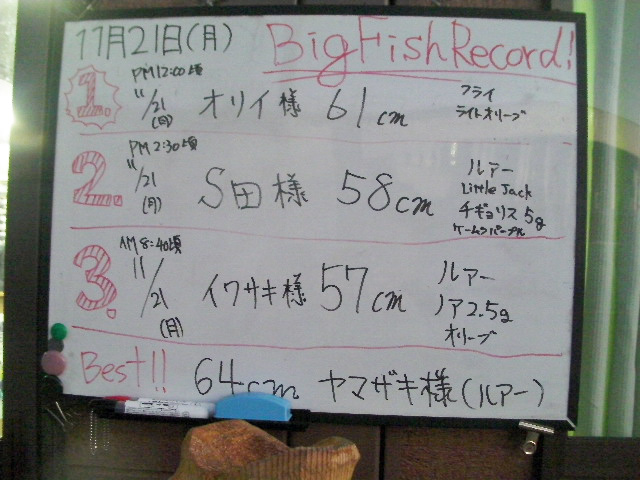 11月21日(月) Big Fish Record!
1. PM12:00頃 11/21(月) オリイ様 61cm フライ
ライトオリーブ
2. PM2:30頃 11/21(月) S田様 58cm ルアー
Little Jack
チギョリス 5g
3. AM8:40頃 11/21(月) イワサキ様 57cm ルアー
ノア2.5g
オリーブ
Best!! 64cm ヤマザキ様(ルアー)